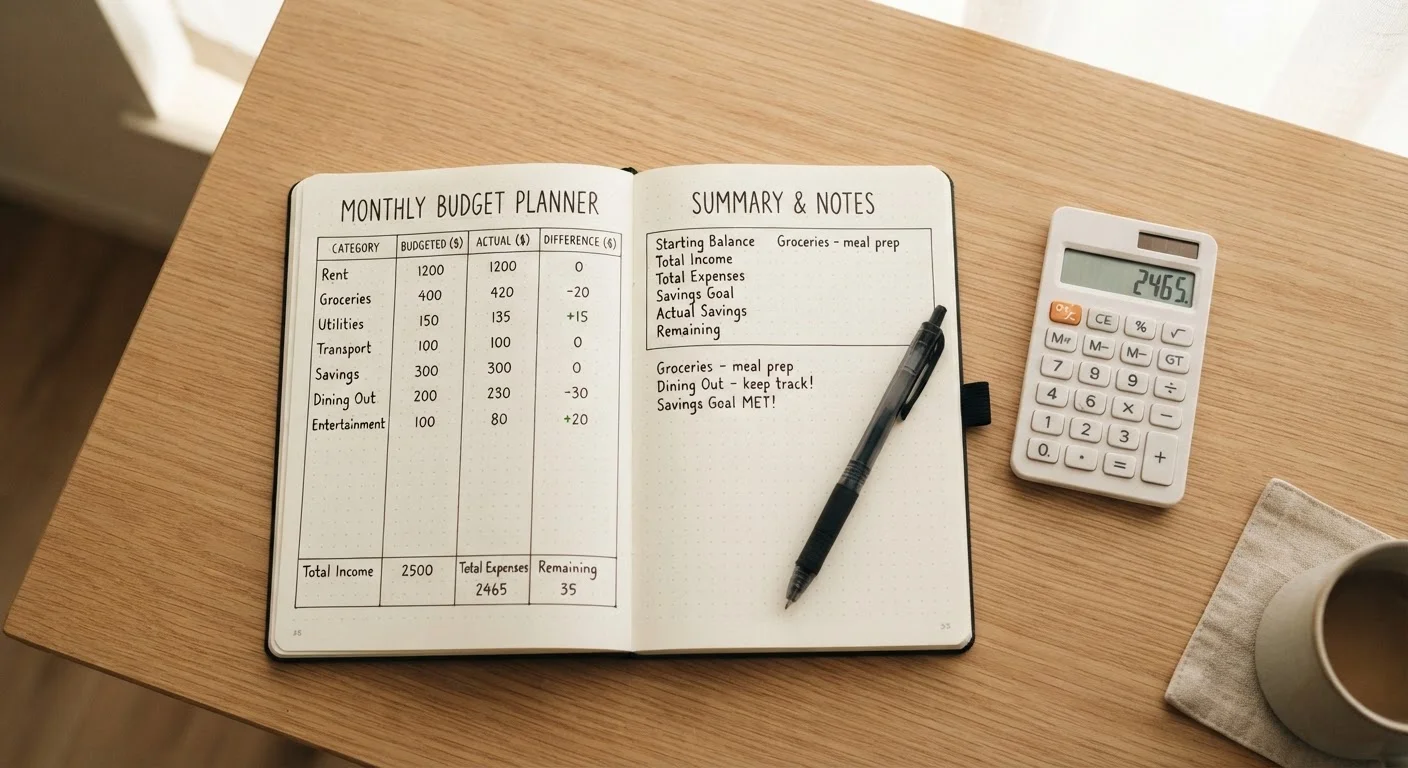 MONTHLY BUDGET PLANNER
CATEGORY BUDGETED ($) ACTUAL ($) DIFFERENCE ($)
Rent 1200 1200 0
Groceries 400 420 -20
Utilities 150 135 +15
Transport 100 100 0
Savings 300 300 0
Dining Out 200 230 -30
Entertainment 100 80 +20
Total Income 2500 Tetal Expenses Remaining
2465 35
SUMMARY & NOTES
Starting Balance Groceries - meal prep
Total Income
Total Expenses
Savings Goal
Actual Savings
Remaining
Groceries - meal prep
Dining Out - keep track!
Savings Goal MET!
2465.
CE % √
M- M- GT
7 9 9 ÷
4 6 × −
1 2 3 +
0. · =